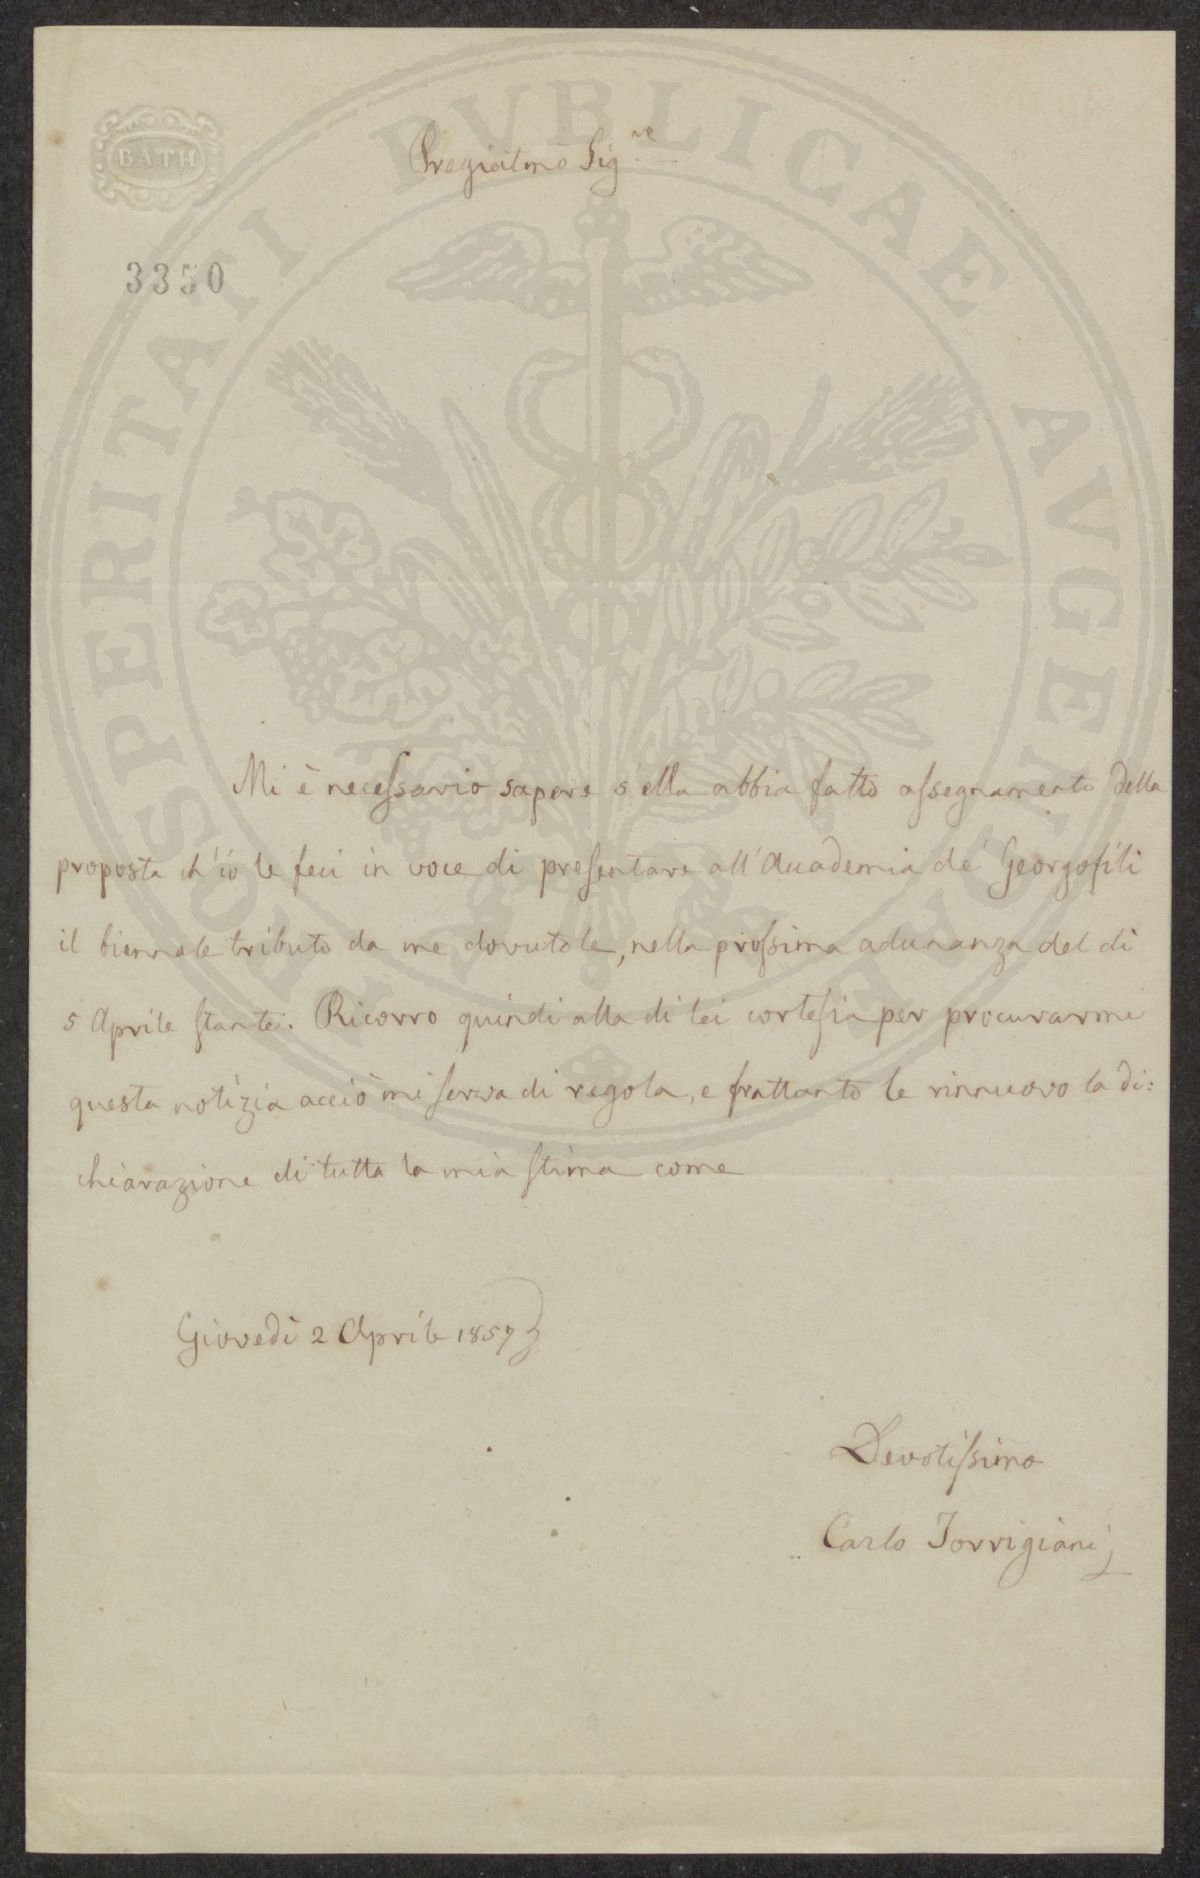 BATH
Pregiatmo Sig.re
3350
PROSPERITATI PVBLICAE AVGENDAE
Mi è necessario sapere s'ella abbia fatto assegnamento della
proposta ch'io le feci in voce di presentare all'Accademia de' Georgofili
il biennale tributo da me dovutole, nella prossima adunanza del dì
5 Aprile stante. Ricorro quindi alla di lei cortesia per procurarmi
questa notizia acciò mi serva di regola, e frattanto le rinnuovo la di=
chiarazione di tutta la mia stima come
Giovedì 2 Aprile 1857
Devotissimo
Carlo Torrigiani